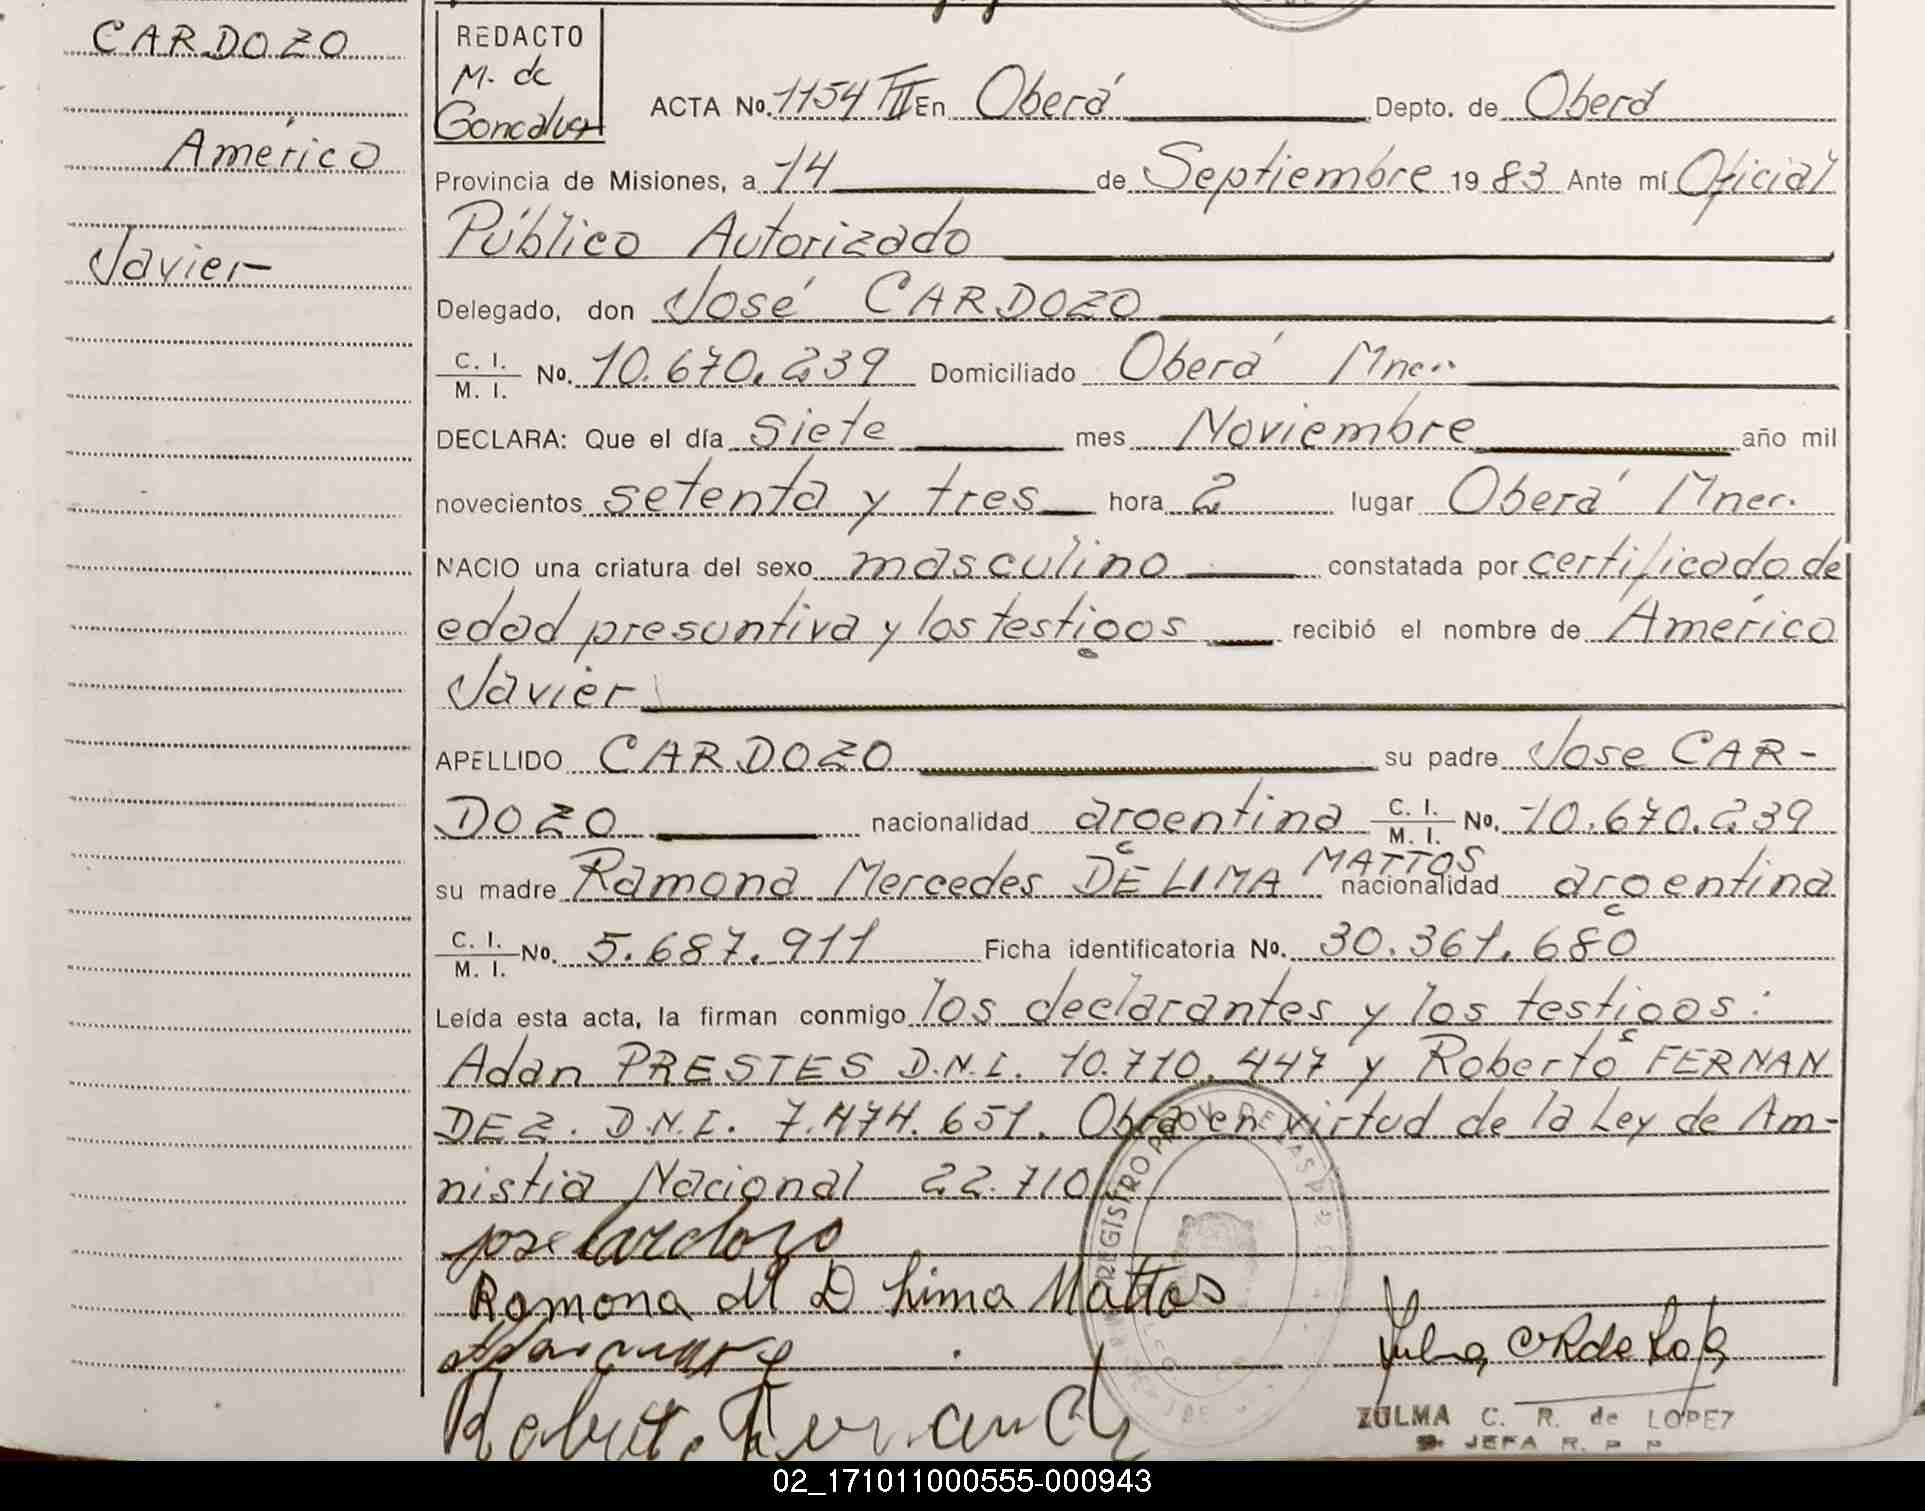 CARDOZO
Américo
Javier
REDACTO
M. de
Goncalvez
ACTA No. 1154 TII En Oberá Depto. de Oberá
Provincia de Misiones, a 14 de Septiembre 19 83 Ante mí Oficial
Público Autorizado
Delegado, don José CARDOZO
C. I.
M. I. No. 10.670.239 Domiciliado Oberá Mnes.
DECLARA: Que el día siete mes Noviembre año mil
novecientos setenta y tres hora 2 lugar Oberá Mnes.
NACIO una criatura del sexo masculino constatada por certificado de
edad presuntiva y los testigos recibió el nombre de Américo
Javier
APELLIDO CARDOZO su padre Jose CAR-
DOZO nacionalidad argentina C. I.
M. I. No. 10.670.239
su madre Ramona Mercedes DE LIMA MATTOS nacionalidad argentina
C. I.
M. I. No. 5.687.911 Ficha identificatoria No. 30.361.680
Leída esta acta, la firman conmigo los declarantes y los testigos:
Adan PRESTES D.N.I. 10.710.447 y Roberto FERNAN
DEZ. D.N.I. 7.474.651. Obra en virtud de la Ley de Am-
nistia Nacional 22.710
jose Cardozo
Ramona M D Lima Mattos
REGISTRO
ZULMA C. R. de LOPEZ
JEFA R. P P
02_171011000555-000943